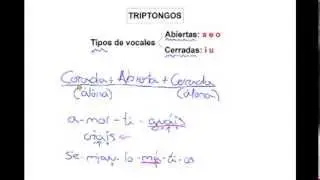 TRIPTONGOS
Tipos de vocales
Abiertas: a e o
Cerradas: i u
Cerrada + Abierta + Cerrada
(átona) (átona)
a-mor-ti-guáis
criais
se-miau-to-má-ti-cos